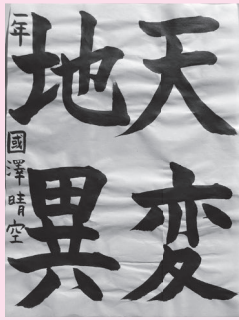 天変
地異
一年 國澤晴空